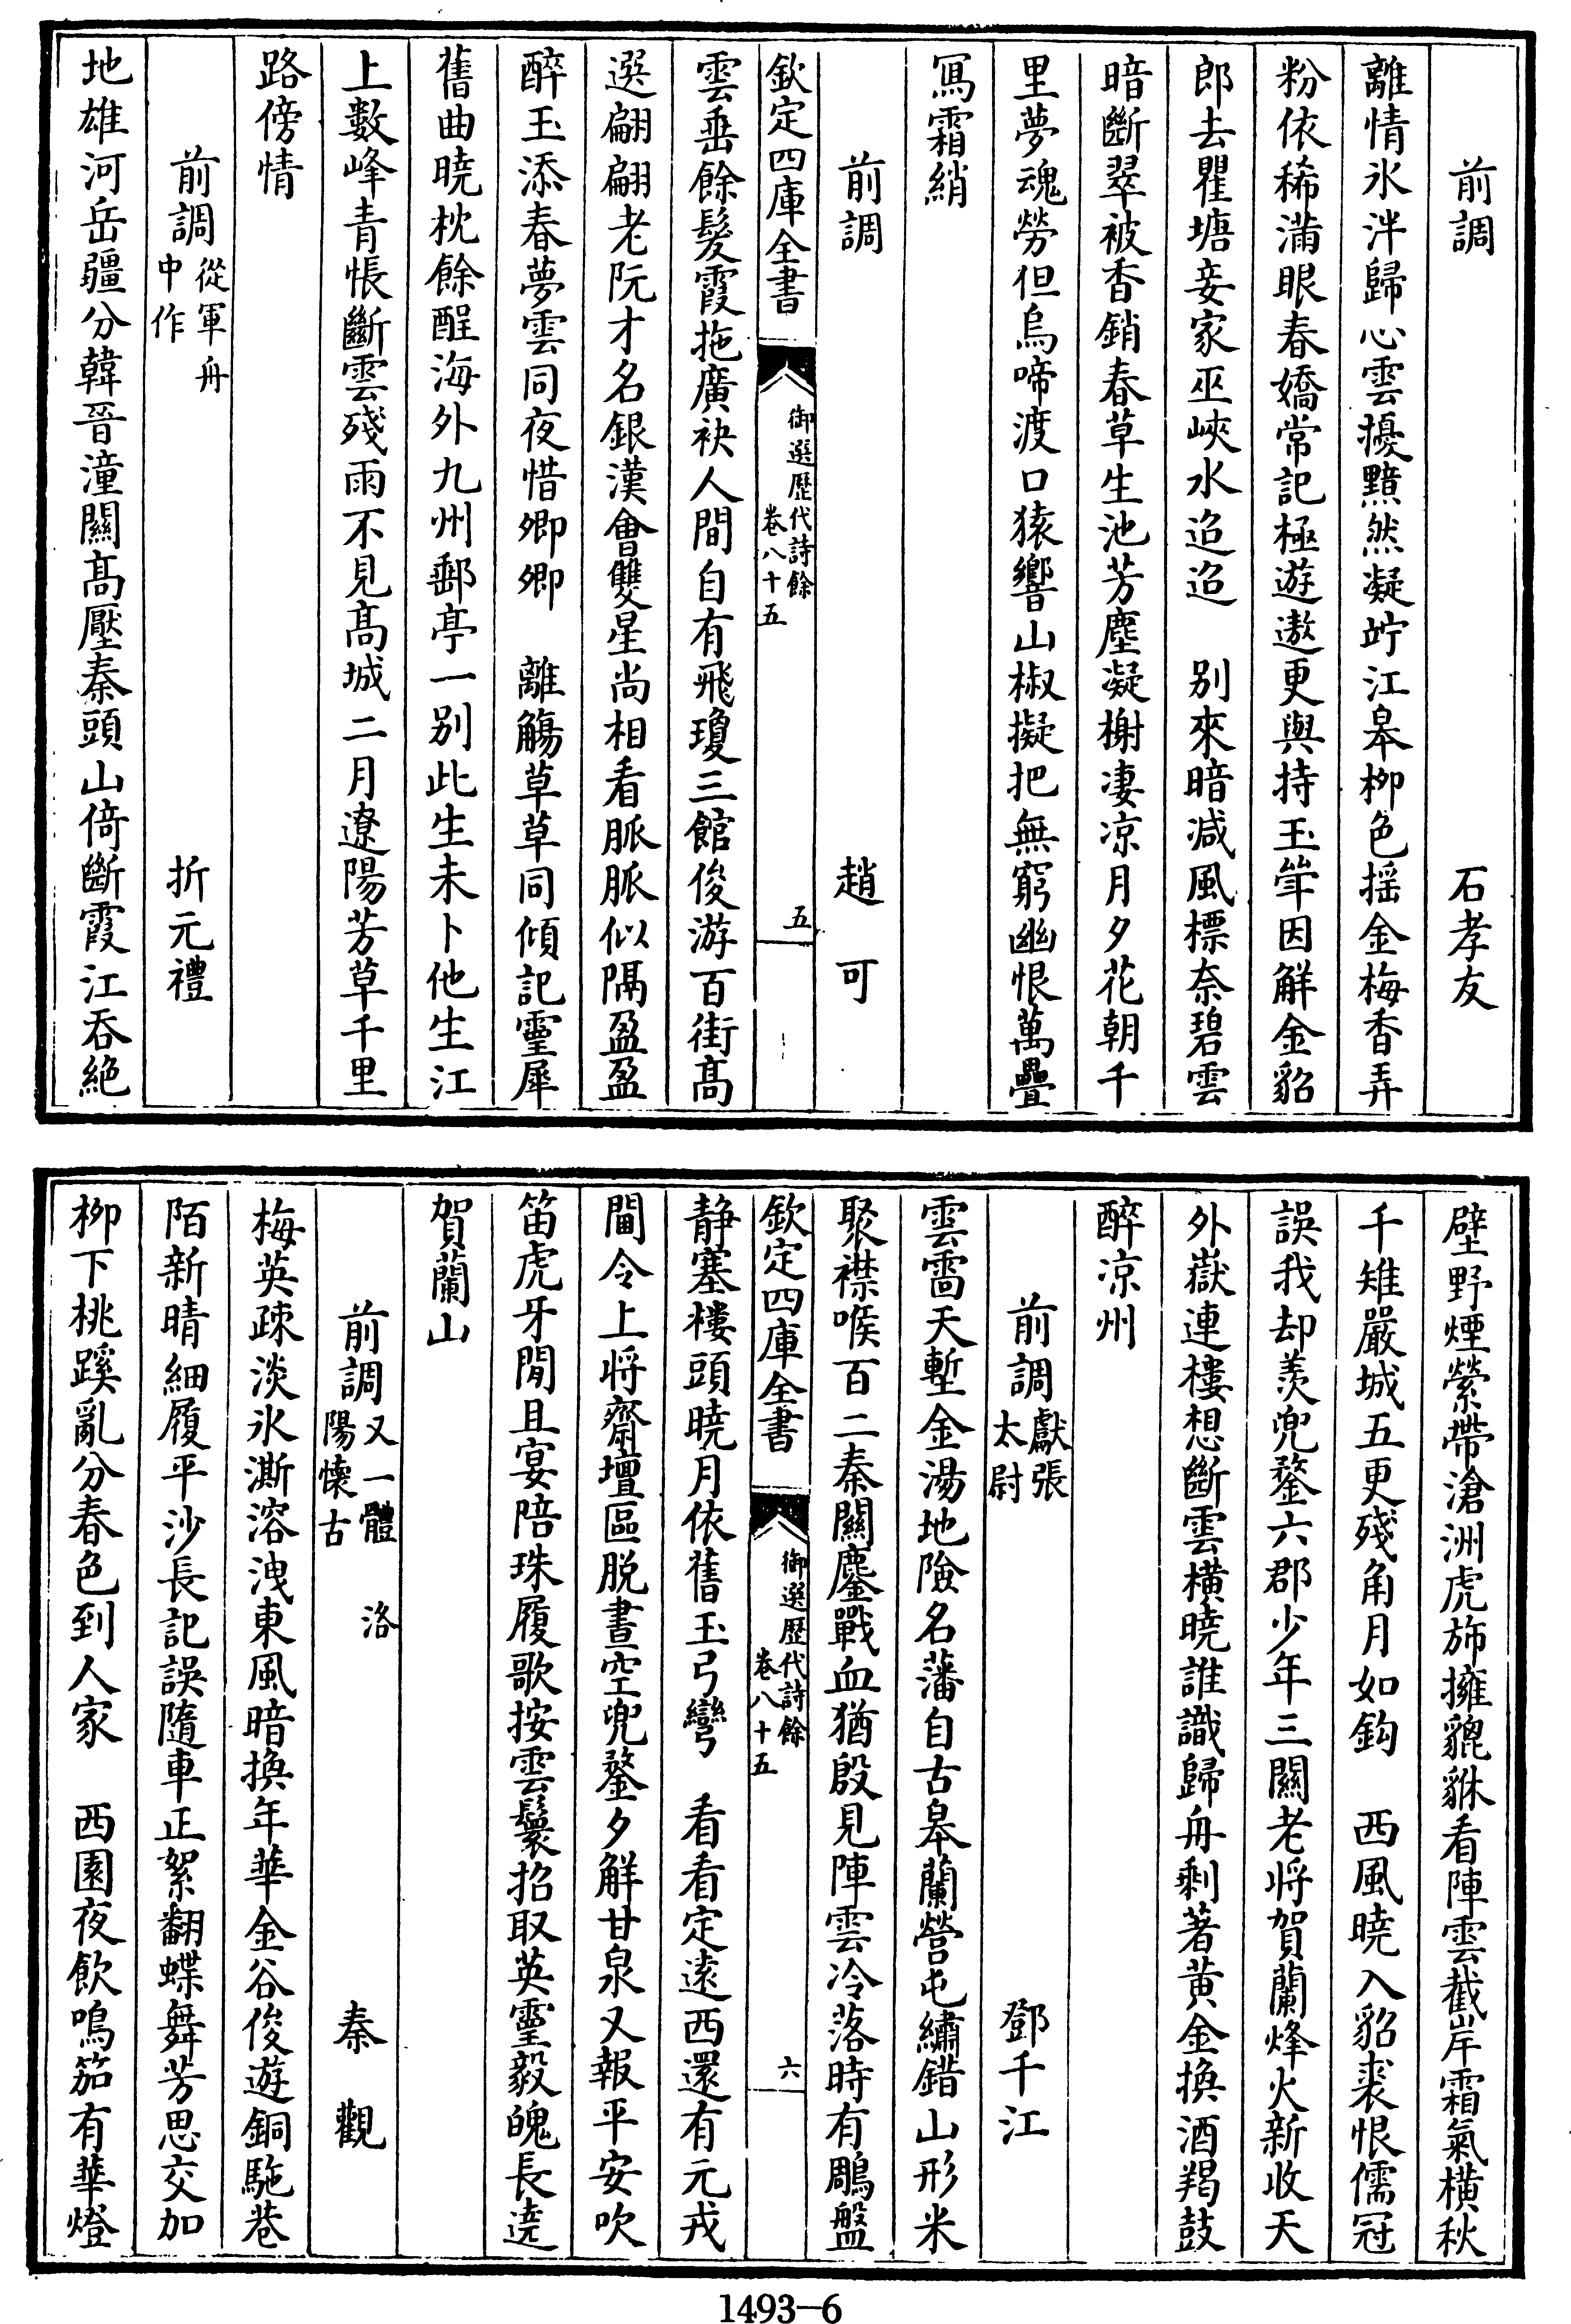 前調　石孝友
離情氷泮歸心雲擾黯然凝竚江皋栁色揺金梅香弄
粉依稀滿眼春嬌常記極遊遨更與持玉斚因解金貂
郎去瞿塘妾家巫峽水迢迢　别來暗减風標奈碧雲
暗斷翠被香銷春草生池芳塵凝榭凄凉月夕花朝千
里夢魂勞但烏啼渡口猿響山椒擬把無窮幽恨萬疊
冩霜綃
前調　趙可
欽定四庫全書　御選歷代詩餘　卷八十五　五
雲垂餘髪霞拖廣袂人間自有飛瓊三館俊游百街髙
選翩翩老阮才名銀漢會雙星尚相看脈脈似隔盈盈
醉玉添春夢雲同夜惜卿卿　離觴草草同傾記靈犀
舊曲曉枕餘酲海外九州郵亭一别此生未卜他生江
上數峰青悵斷雲殘雨不見髙城二月遼陽芳草千里
路傍情
前調從軍舟中作　折元禮
地雄河岳疆分韓晋潼關髙壓秦頭山倚斷霞江吞絶
壁野煙縈帶滄洲虎斾擁貔貅看陣雲截岸霜氣橫秋
千雉嚴城五更殘角月如鈎　西風曉入貂裘恨儒冠
誤我却羡兜鍪六郡少年三關老將賀蘭烽火新收天
外嶽連樓想斷雲橫曉誰識歸舟剩著黄金換酒羯鼓
醉凉州
前調獻張太尉　鄧千江
雲雷天塹金湯地險名藩自古皋蘭營屯繡錯山形米
聚襟喉百二秦關鏖戰血猶殷見陣雲冷落時有鵰盤
欽定四庫全書　御選歷代詩餘　卷八十五　六
静塞樓頭曉月依舊玉弓彎　看看定逺西還有元戎
閫令上將齋壇區脱晝空兜鍪夕解甘泉又報平安吹
笛虎牙閒且宴陪珠履歌按雲鬟招取英靈毅魄長遶
賀蘭山
前調又一體　洛陽懷古　秦觀
梅英疎淡氷澌溶洩東風暗換年華金谷俊遊銅駞巷
陌新晴細履平沙長記誤隨車正絮翻蝶舞芳思交加
栁下桃蹊亂分春色到人家　西園夜飲鳴笳有華燈
1493—6